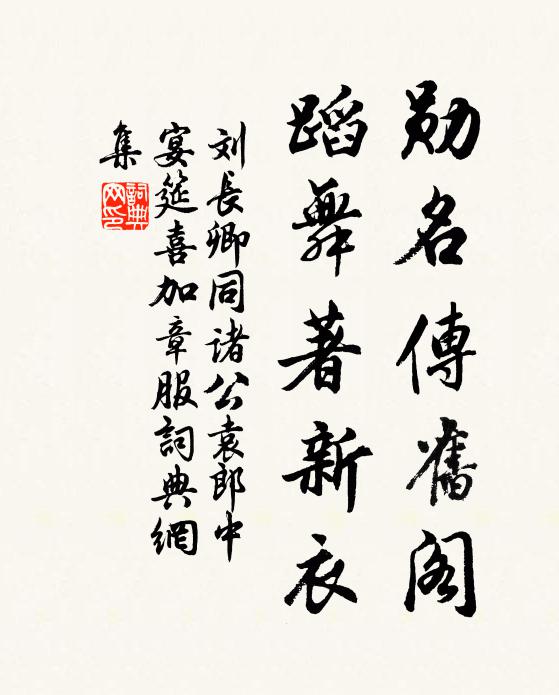 勋名傳舊阁
蹈舞著新衣
刘長卿同诸公袁郎中
宴筵喜加章服詞典網
集
詞典网印